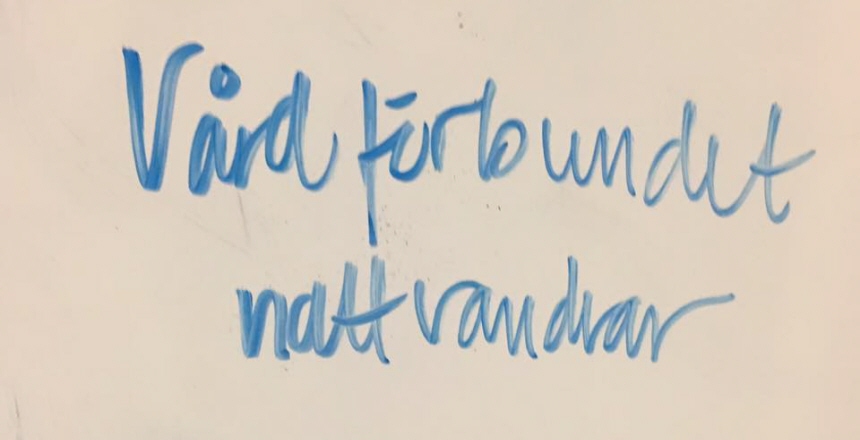 Vårdförbundet
nattvandrar